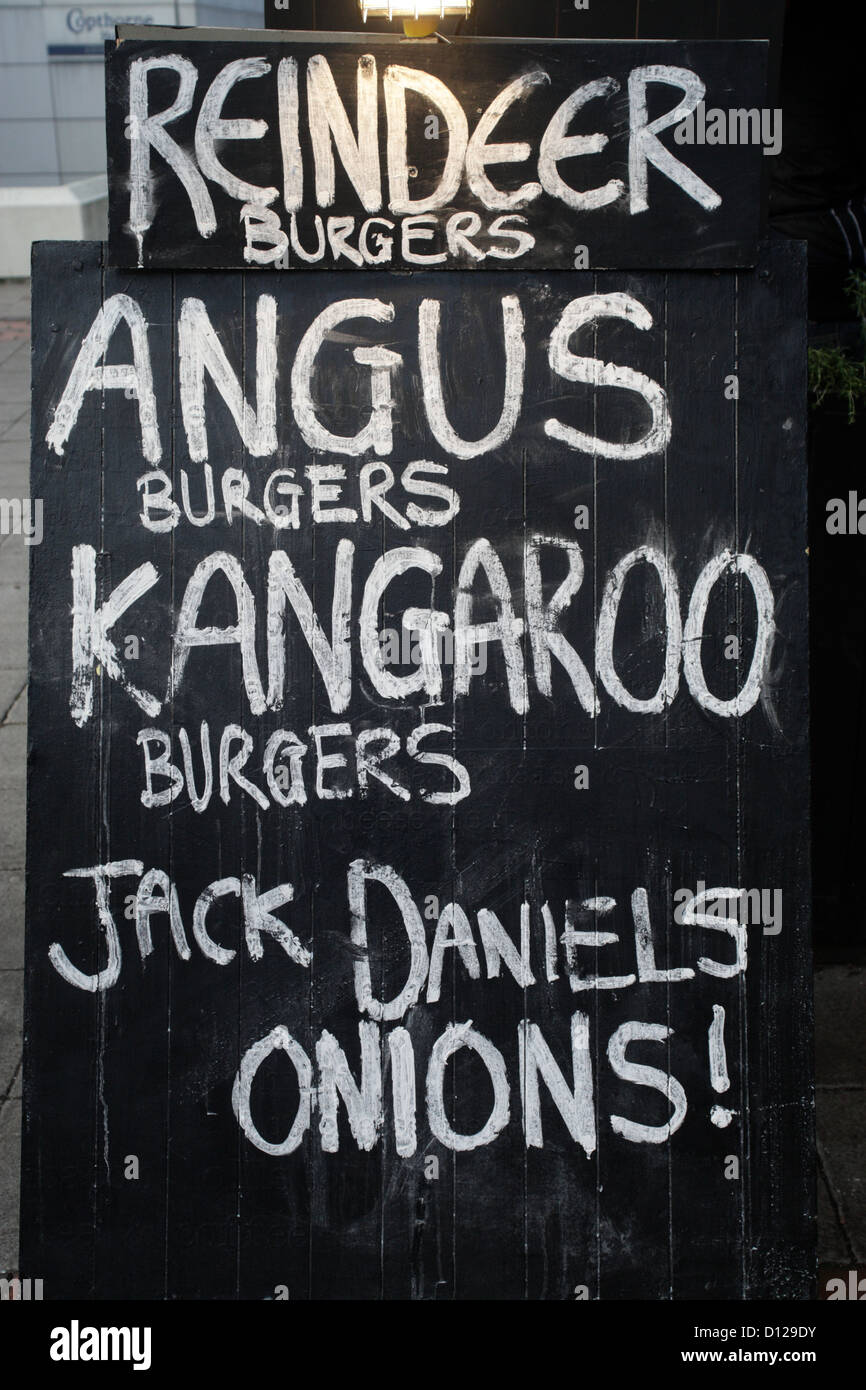 Copthorne
REINDEER
BURGERS
ANGUS
BURGERS
KANGAROO
BURGERS
JACK DANIELS
ONIONS!
alamy
Image ID: D129DY
www.alamy.com